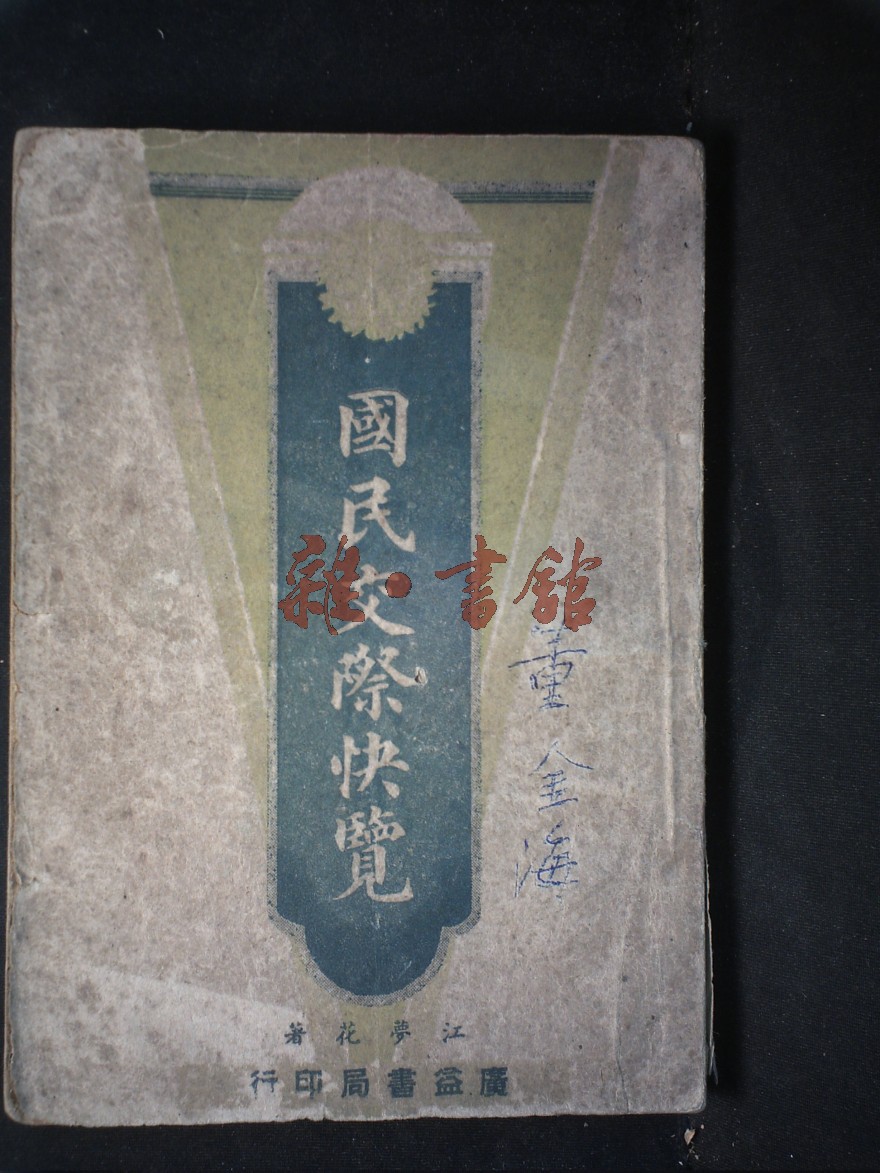 國民交際快覽
雜·書館
董金海
江夢花著
廣益書局印行